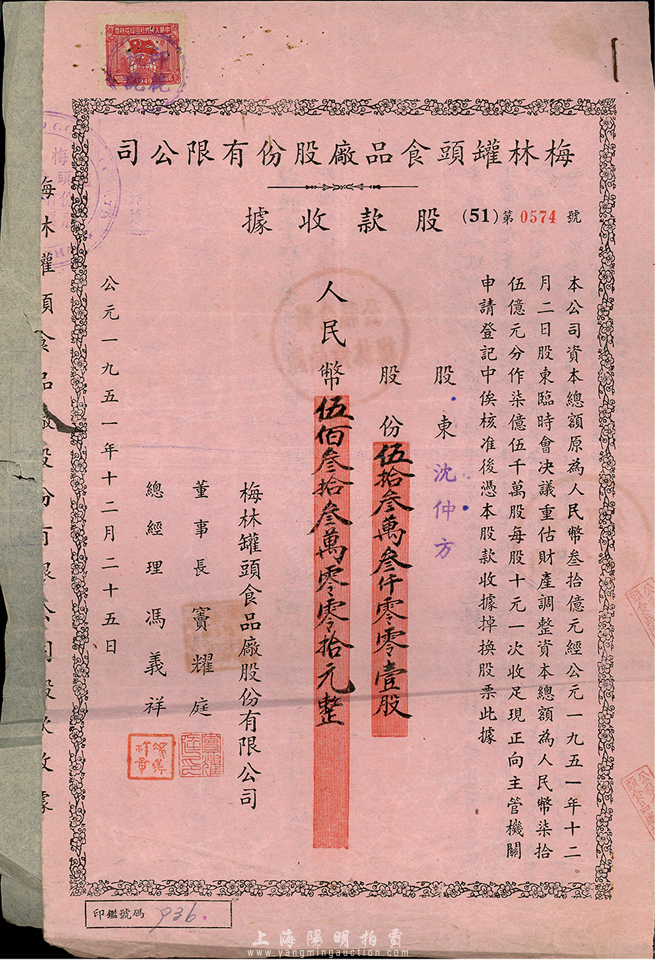 梅林罐頭食品廠股份有限公司
股款收據
(51)第0574號
本公司資本總額原為人民幣叁拾億元經公元一九五一年十二
月二日股東臨時會決議重估財產調整資本總額為人民幣柒拾
伍億元分作柒億伍千萬股每股十元一次收足現正向主管機關
申請登記中俟核准後憑本股款收據掉換股票此據
股東沈仲方
股份伍拾叁萬叁仟零零壹股
人民幣伍佰叁拾叁萬零零拾元整
梅林罐頭食品廠股份有限公司
董事長 竇耀庭
總經理 馮義祥
公元一九五一年十二月二十五日
梅林罐頭食品廠股份有限公司股款收據
印鑑號碼 936.
1949
上海陽明拍賣
www.yangmingauction.com